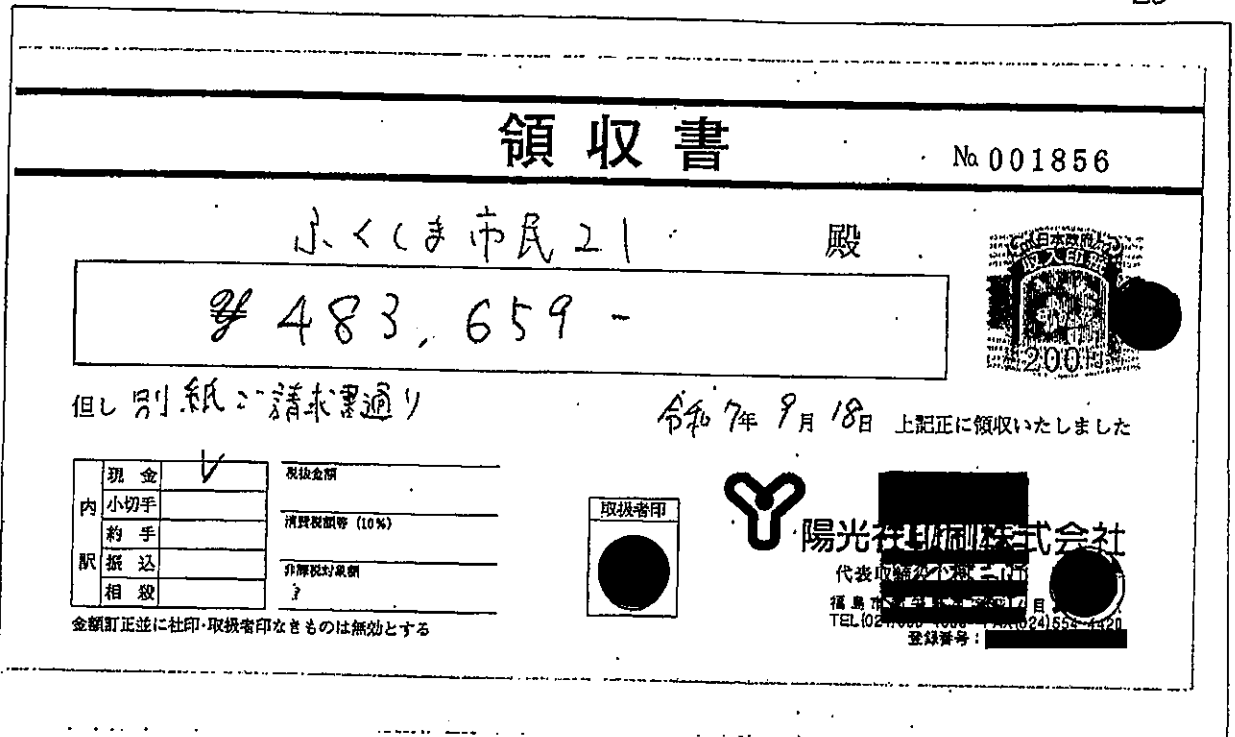 領収書
№ 001856
ふくしま市民21 殿
¥ 483,659-
日本政府
収入印紙
200
但し 別紙ご請求書通り
令和 7年 9月 18日 上記正に領収いたしました
内訳
現金 ✓
小切手
約手
振込
相殺
税抜金額
消費税額等 (10%)
非課税対象額
取扱者印
陽光社印刷株式会社
代表取締役
福島市
TEL(024) FAX(024)554-4420
登録番号:
金額訂正並に社印・取扱者印なきものは無効とする